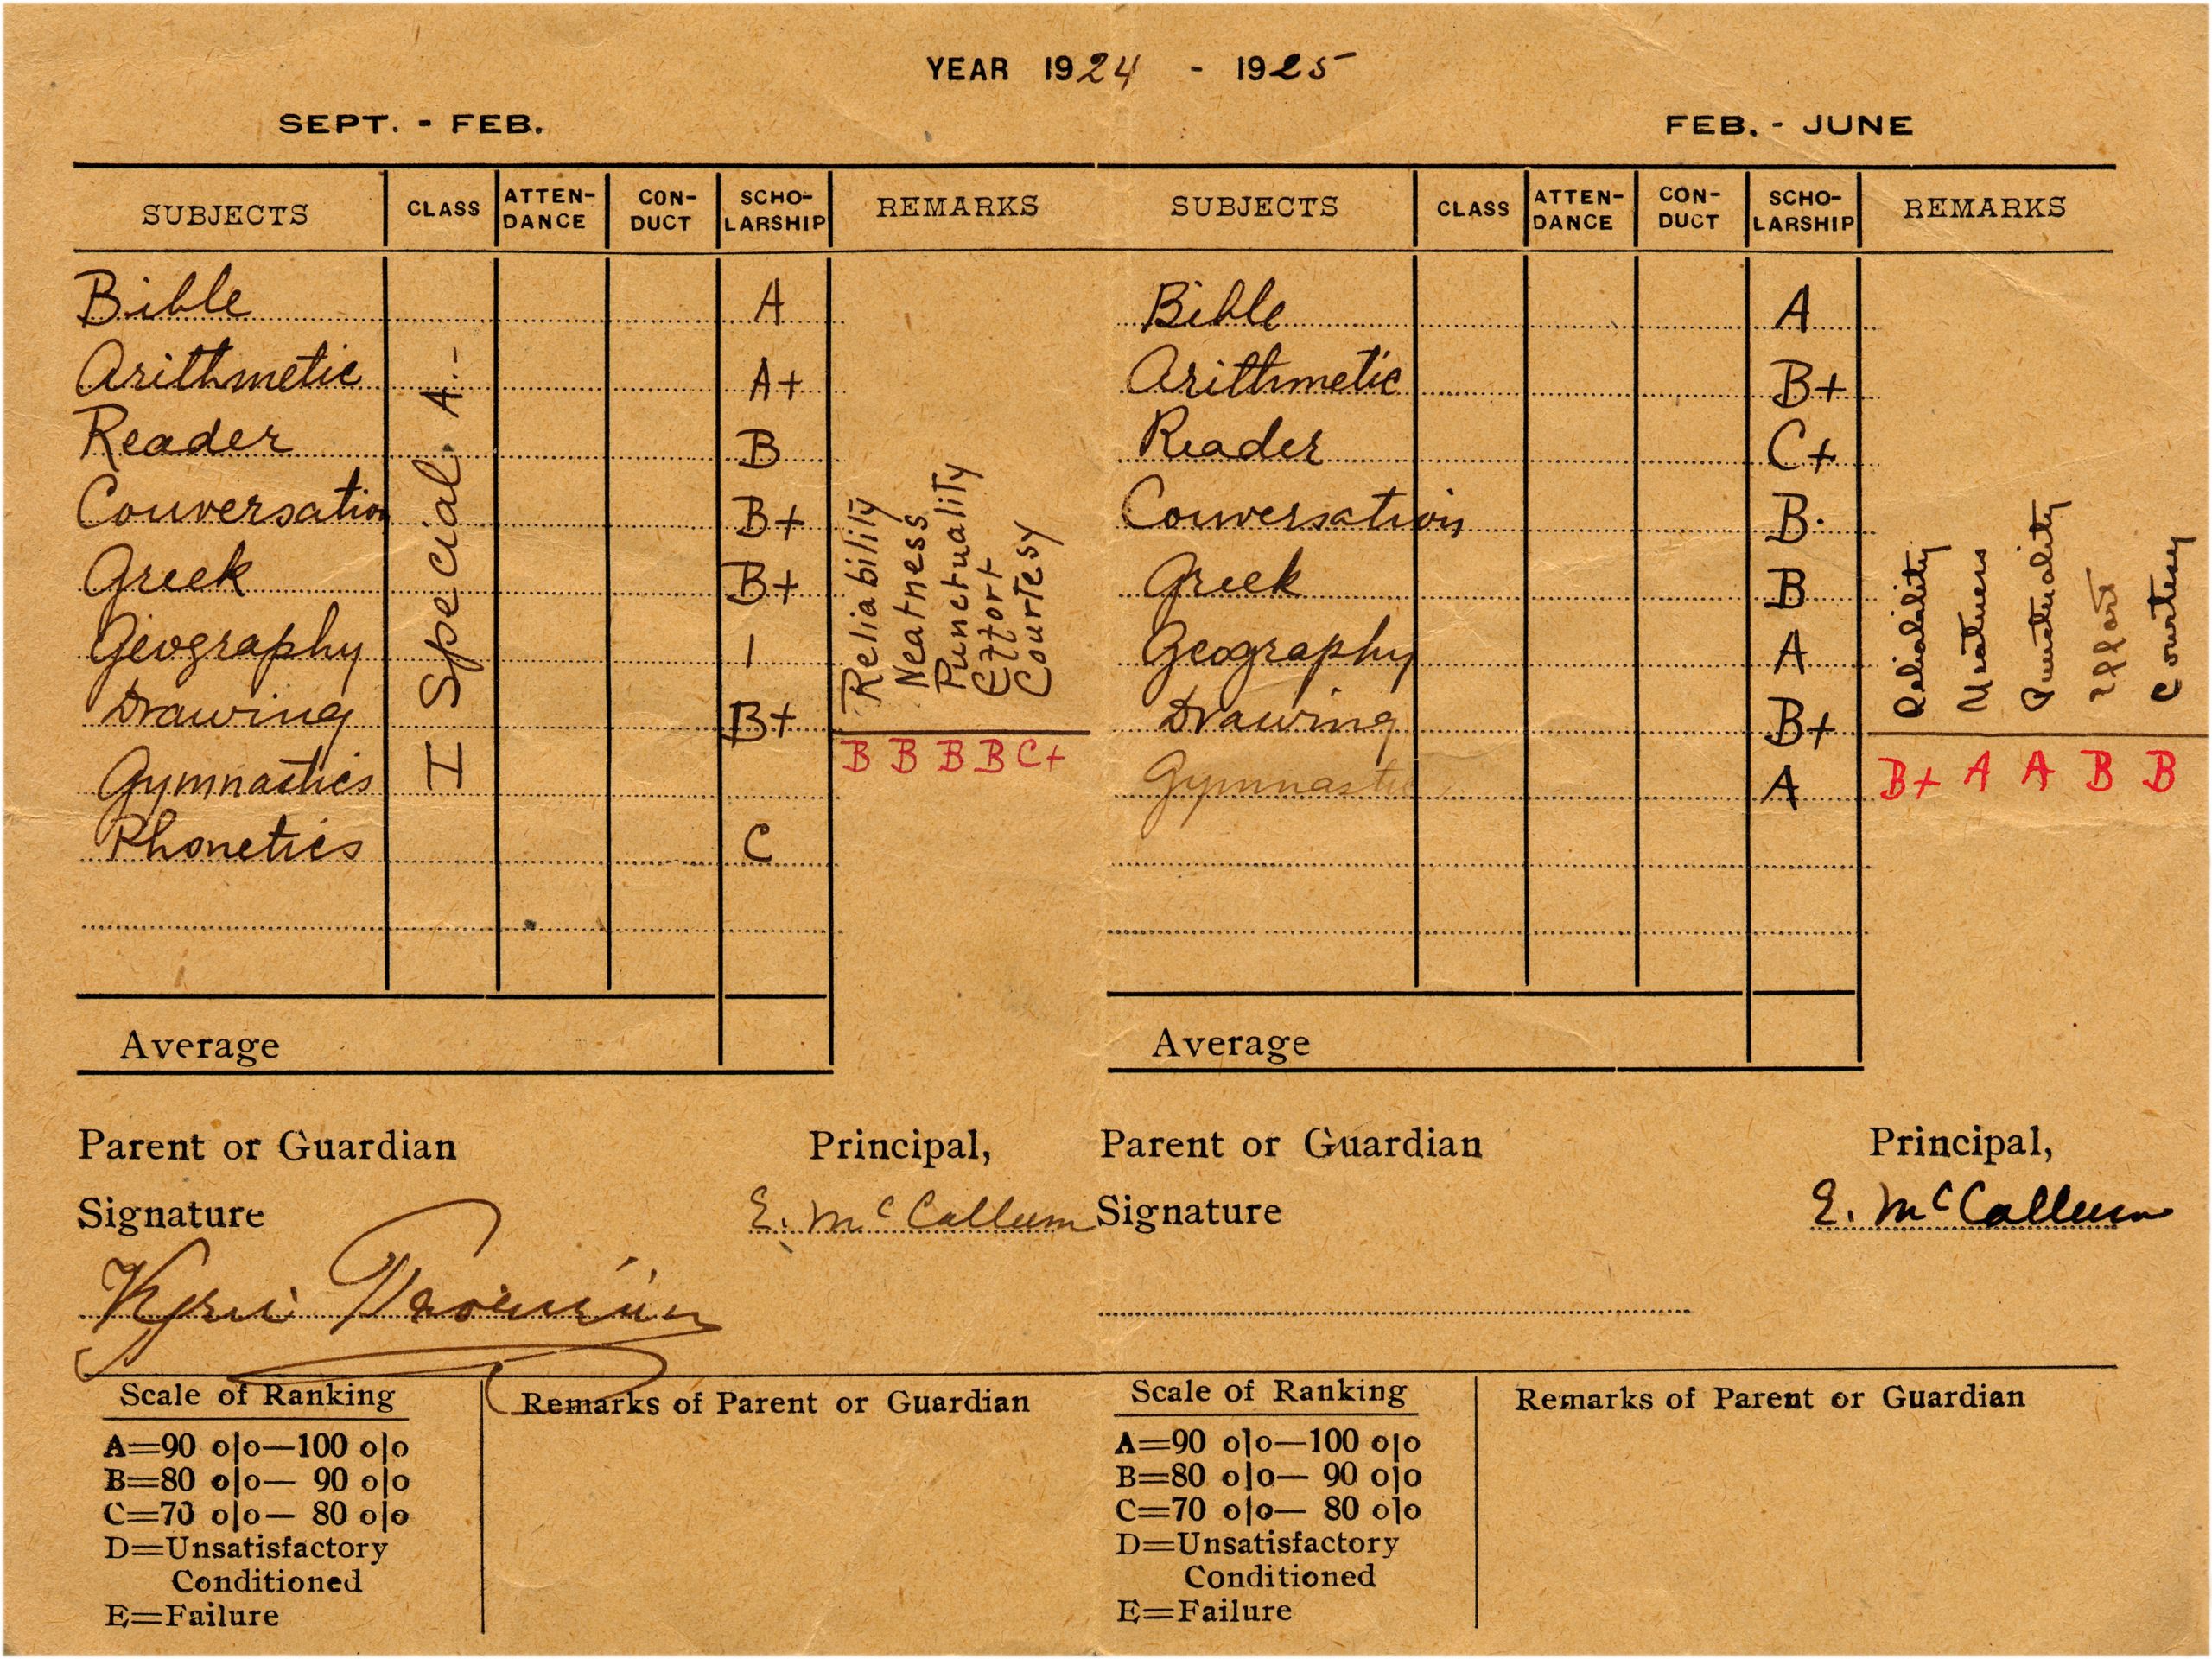 YEAR 1924 - 1925
SEPT. - FEB.
SUBJECTS CLASS ATTEN-DANCE CON-DUCT SCHO-LARSHIP REMARKS
Bible A
Arithmetic A+
Reader B
Conversation B+
Greek B+
Geography 1
Drawing B+
Gymnastics
Phonetics C
I Special A.-
Reliability
Neatness
Punctuality
Effort
Courtesy
B B B B C+
Average
Parent or Guardian Principal,
Signature E. McCallum
Scale of Ranking
A=90 o|o—100 o|o
B=80 o|o— 90 o|o
C=70 o|o— 80 o|o
D=Unsatisfactory
Conditioned
E=Failure
Remarks of Parent or Guardian
FEB. - JUNE
SUBJECTS CLASS ATTEN-DANCE CON-DUCT SCHO-LARSHIP REMARKS
Bible A
Arithmetic B+
Reader C+
Conversation B.
Greek B
Geography A
Drawing B+
Gymnastic A
Reliability
Neatness
Punctuality
Effort
Courtesy
B+ A A B B
Average
Parent or Guardian Principal,
Signature E. McCallum
Scale of Ranking
A=90 o|o—100 o|o
B=80 o|o— 90 o|o
C=70 o|o— 80 o|o
D=Unsatisfactory
Conditioned
E=Failure
Remarks of Parent or Guardian